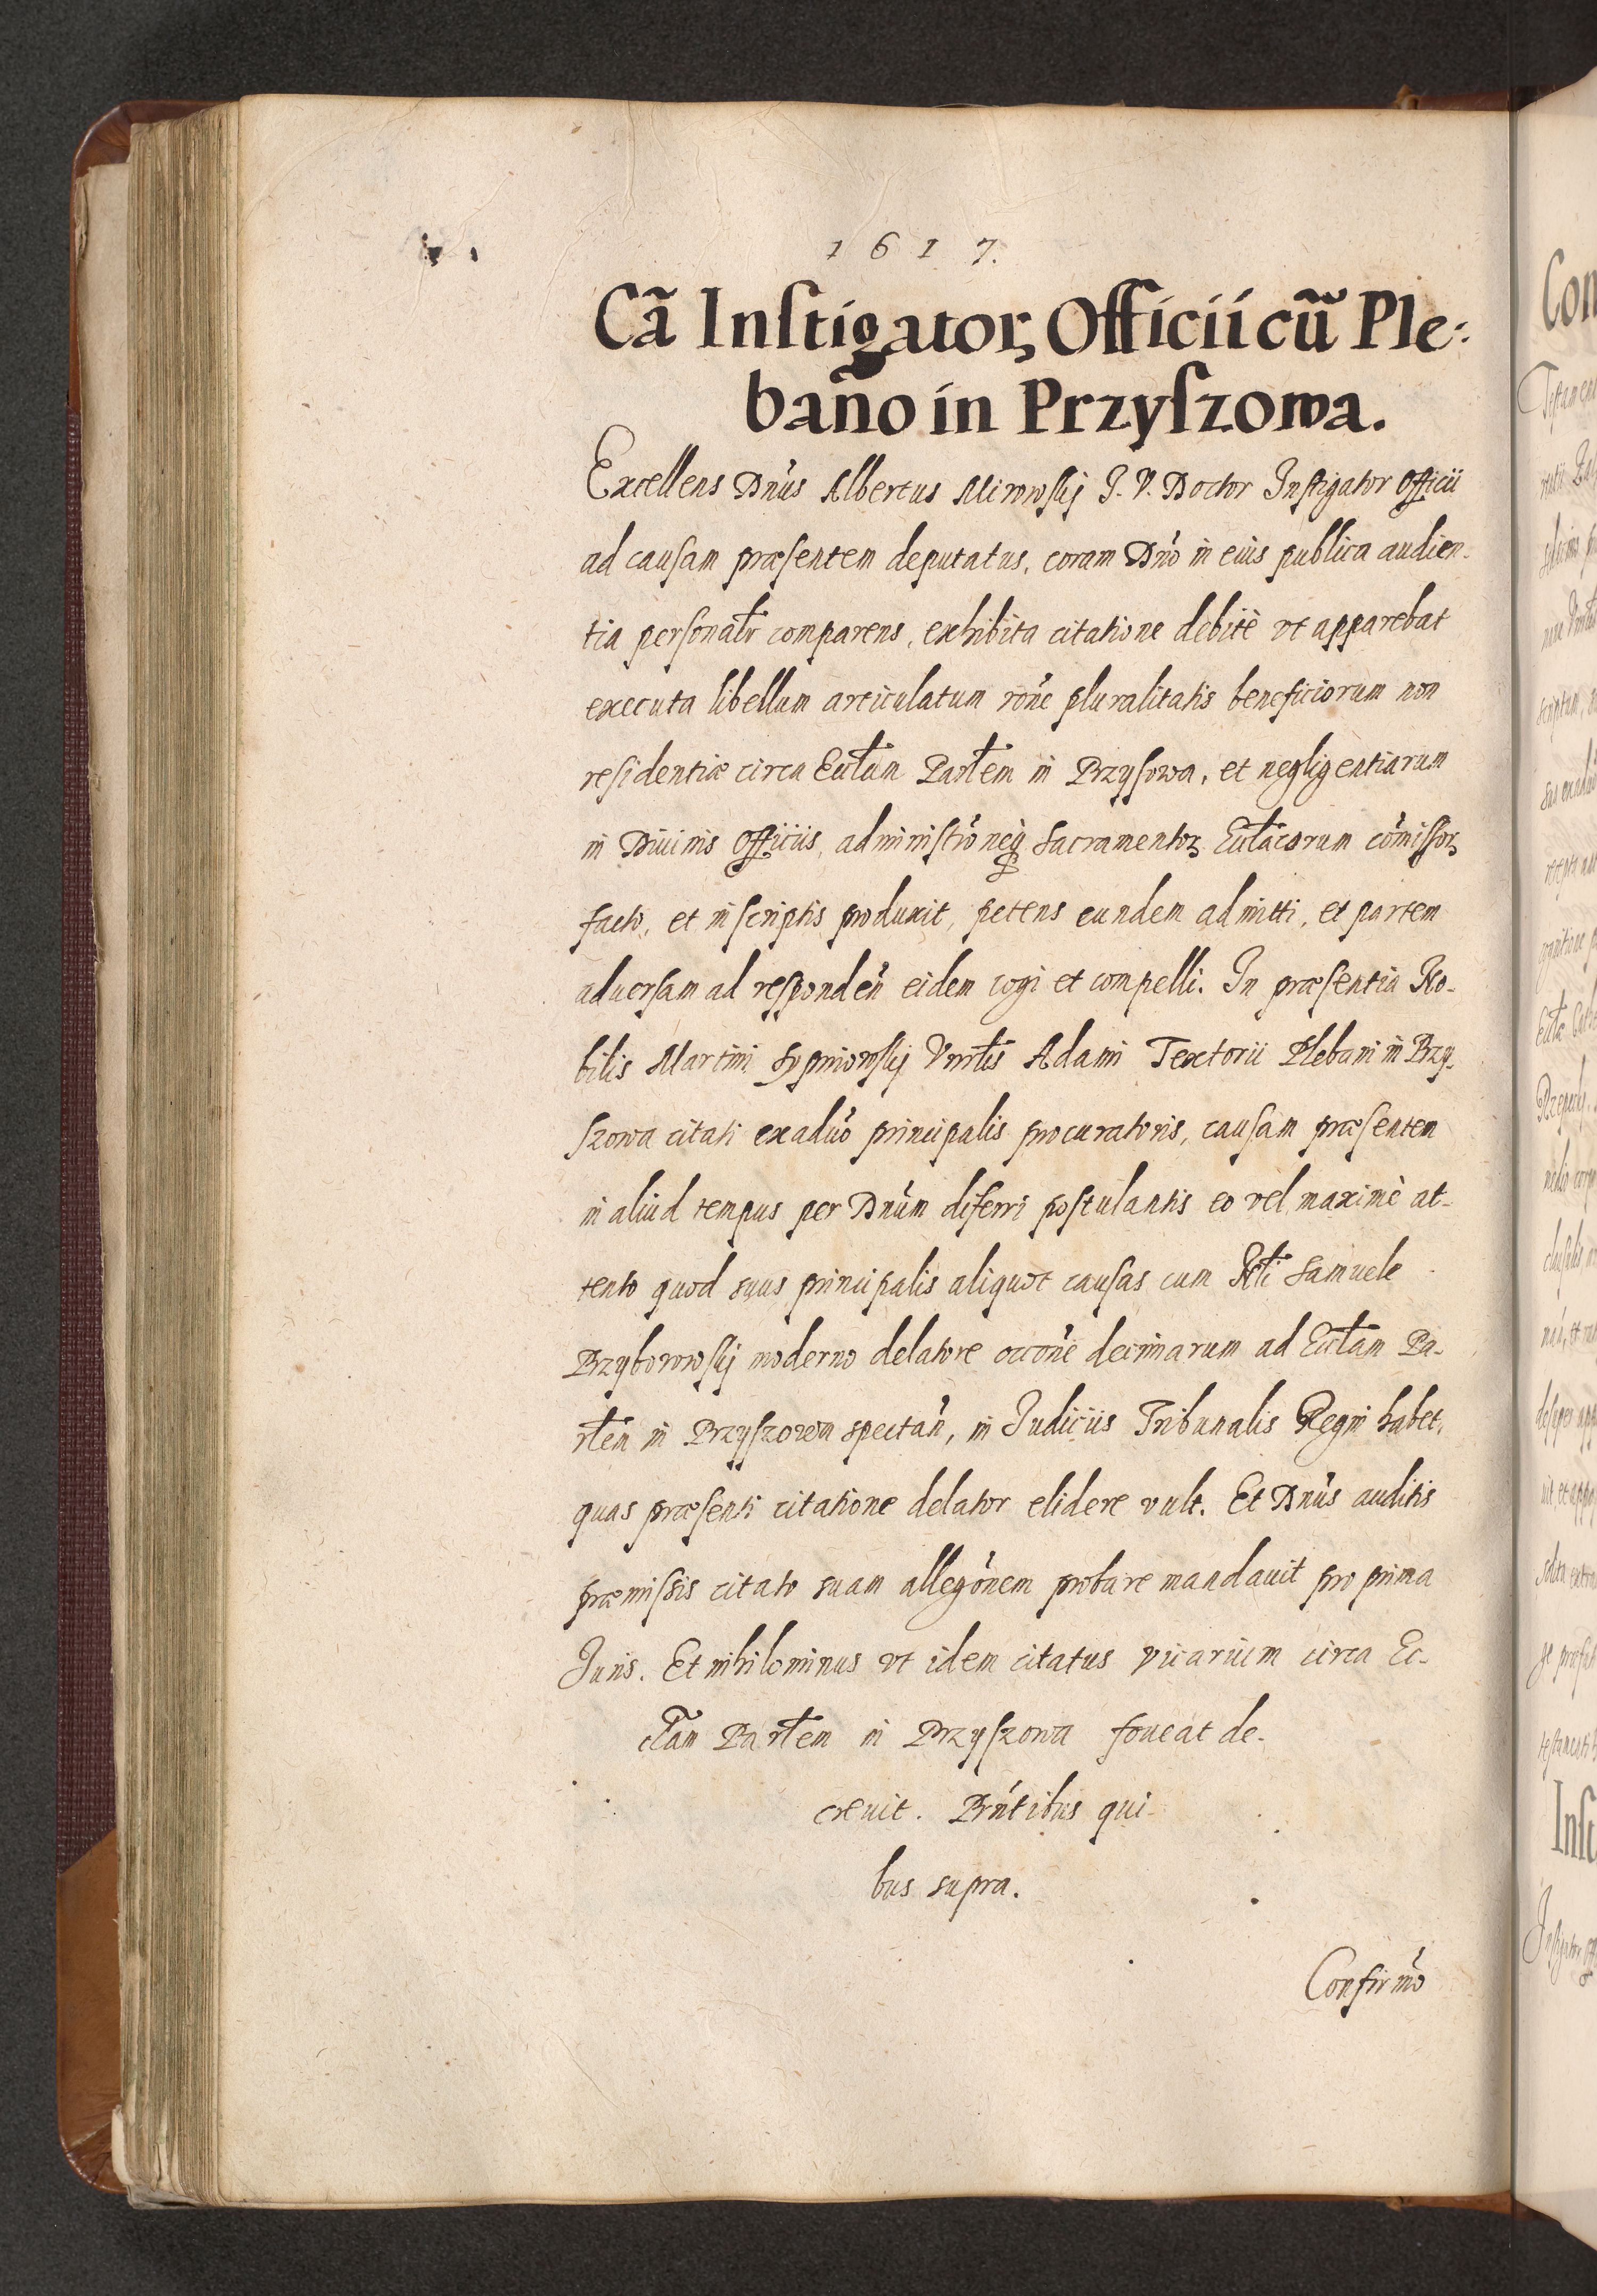 1617.
Cã Inſtigatoꝝ Officii cũ Ple:
bano in Przyſzowa.
Excellens Dnus Albertus Mirowskij J. V. Doctor Inſtigator Officii
ad cauſam præſentem deputatus, coram Dno in eius publica audien-
tia perſonalr comparens, exhibita citatione debitè vt apparebat
executa libellum articulatum rone pluralitatis beneficiorum non
reſidentiæ circa Eccłam Parłem in Przyſowa, et negligentiarum
in Diuinis Officiis, adminiſtroneq; Sacramentoꝝ Eccłacorum comiſſoꝝ
facto, et in ſcriptis produxit, petens eundem admitti, et partem
aduerſam ad reſponden eidem cogi et compelli. In præſentia No-
bilis Martini Sypniowskij Vnrłis Adami Textorii Plebani in Przy-
ſzowa citati ex aduo principalis procuratoris, cauſam præſentem
in aliud tempus per Dnum differri poſtulantis eo vel maximè at-
tento quod suus principalis aliquot cauſas cum Samuele
Przyborowskij moderno delatore occone decimarum ad Eccłam Pa-
rłem in Przyſzowa spectan, in Judiciis Tribunalis Regni habet,
quas præſenti citatione delator elidere vult. Et Dnus auditis
præmiſsis citato suam allegonem probare mandauit pro prima
Juris. Et nihilominus vt idem citatus vicarium circa Ec-
cłam Parłem in Przyſzowa foueat de-
creuit. Prntibus qui-
bus supra.
Confirmo